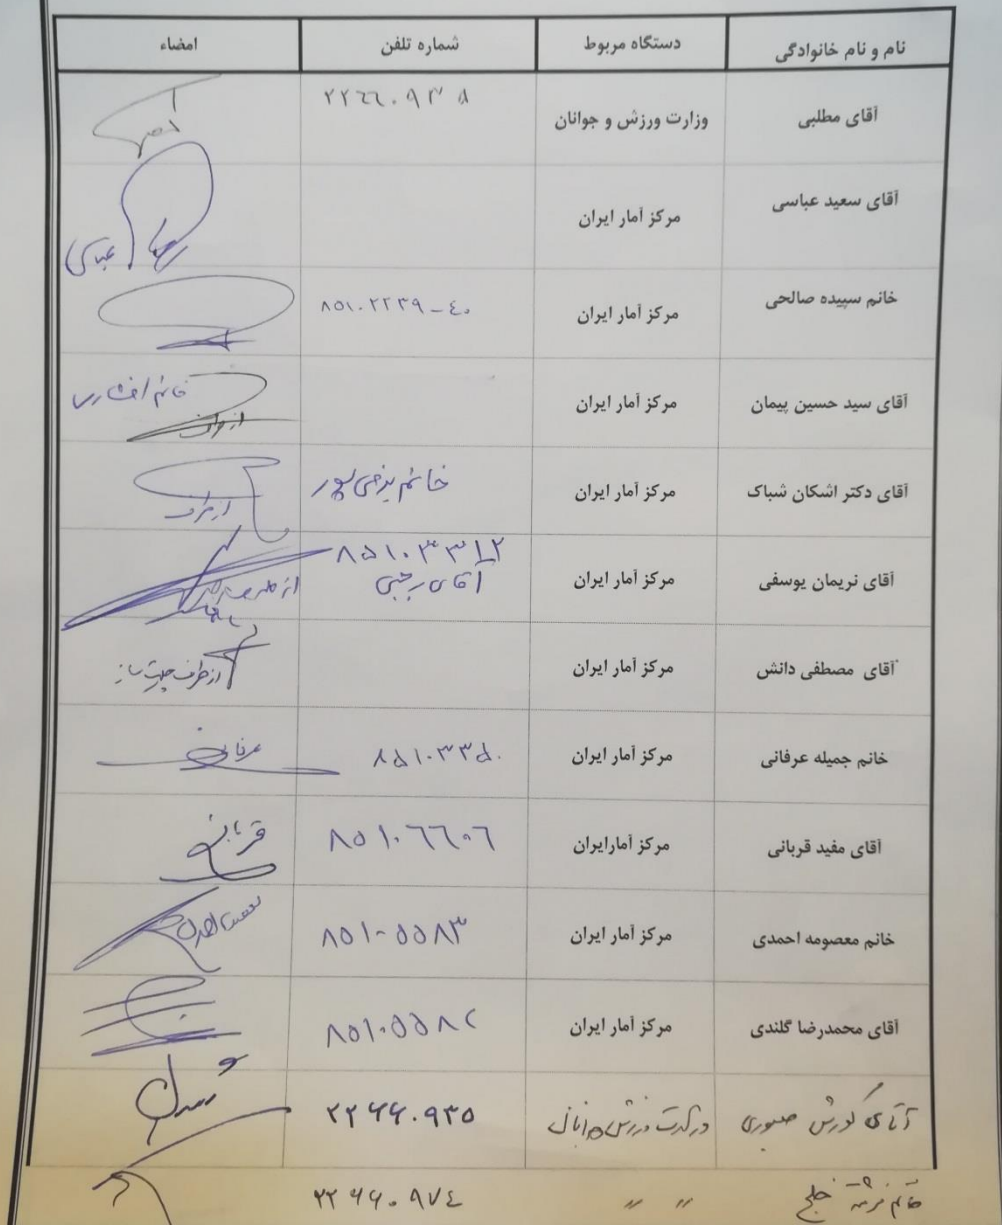 نام و نام خانوادگی دستگاه مربوط شماره تلفن امضاء
آقای مطلبی وزارت ورزش و جوانان ۲۲۶۶۰۹۳۸
آقای سعید عباسی مرکز آمار ایران عباسی
خانم سپیده صالحی مرکز آمار ایران ۸۵۱۰۲۲۳۹-۴۰
آقای سید حسین پیمان مرکز آمار ایران از طرف خانم افشاری
آقای دکتر اشکان شباک مرکز آمار ایران خانم پور از طرف
آقای نریمان یوسفی مرکز آمار ایران ۸۵۱۰۳۳۱۲
آقای رجبی از طرف
آقای مصطفی دانش مرکز آمار ایران از طرف
خانم جمیله عرفانی مرکز آمار ایران ۸۵۱۰۳۳۵۰ عرفانی
آقای مفید قربانی مرکز آمارایران ۸۵۱۰۶۶۰۶ قربانی
خانم معصومه احمدی مرکز آمار ایران ۸۵۱۰۵۵۸۳ معصومه احمدی
آقای محمدرضا گلندی مرکز آمار ایران ۸۵۱۰۵۵۸۲
آقای کورش صبوری وزارت ورزش و جوانان ۲۲۶۶۰۹۳۵
خانم فرشته خلج " " ۲۲۶۶۰۹۷۴